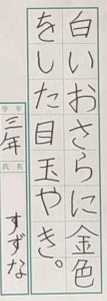 白いおさらに金色
をした目玉やき。
学年
三年
氏名
すずな